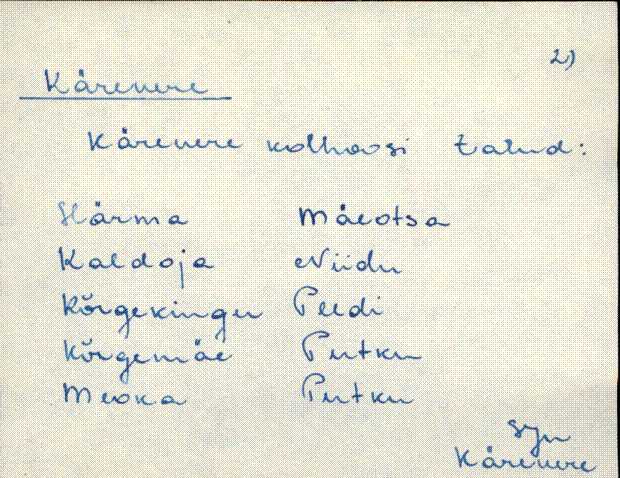 2)
Kärevere
Kärevere kolhoosi talud:
Härma Mäeotsa
Kaldoja Niidu
Kõrgekingu Peedi
Kõrgemäe Putku
Meoka Putku
SJn
Kärevere